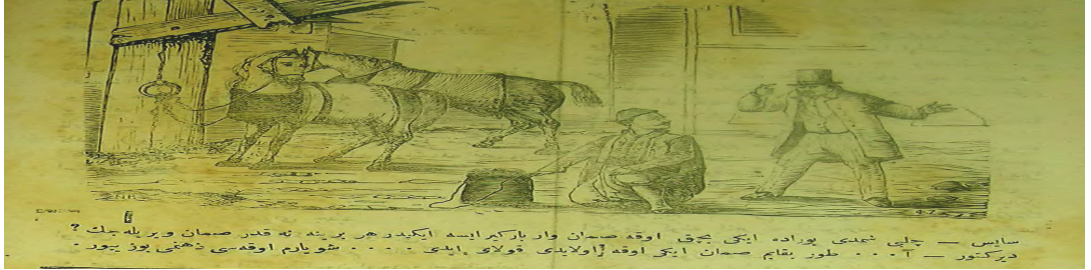 سایس — چلبی شمدی بوراده ایکی بچق اوقه صمان وار بارکیر ایسه ایکیدر هر برینه نه قدر صمان ویریله جك ؟
دیرکتور — آ . . . طور بقایم صمان ایکی اوقه اولایدی قولای ایدی . . . . شو یارم اوقه سی ذهنمی بوزیور .